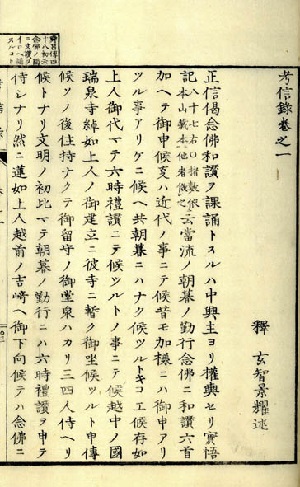 考信錄卷之一
釋 玄智景耀述
正信偈念佛和讃ヲ課誦トスルハ中興主ヨリ權輿セリ實悟
記八十七右〇指數依本山藏本他者傚之云當流ノ朝暮ノ勤行念佛ニ和讃六首
加ヘテ御申候叓ハ近代ノ事ニテ候昔モ加様ニハ御申アリ
ツル事アリケニ候ヘ共朝暮ニハナク候ツルトキコエ候存如
上人御代マテ六時禮讃ニテ候ツルトノ事ニテ候越中ノ國
瑞泉寺綽如上人ノ御建立ニ彼寺ニ暫ク御坐候ツルト申傳
候ソノ後住持ナクテ御留守ノ御堂衆ハカリ三四人侍ヘリ
候トナリ文明ノ初比マテ朝暮ノ勤行ニハ六時禮讃ヲ申テ
侍シナリ然ニ蓮如上人越前ノ吉崎ヘ御下向候テハ念佛ニ